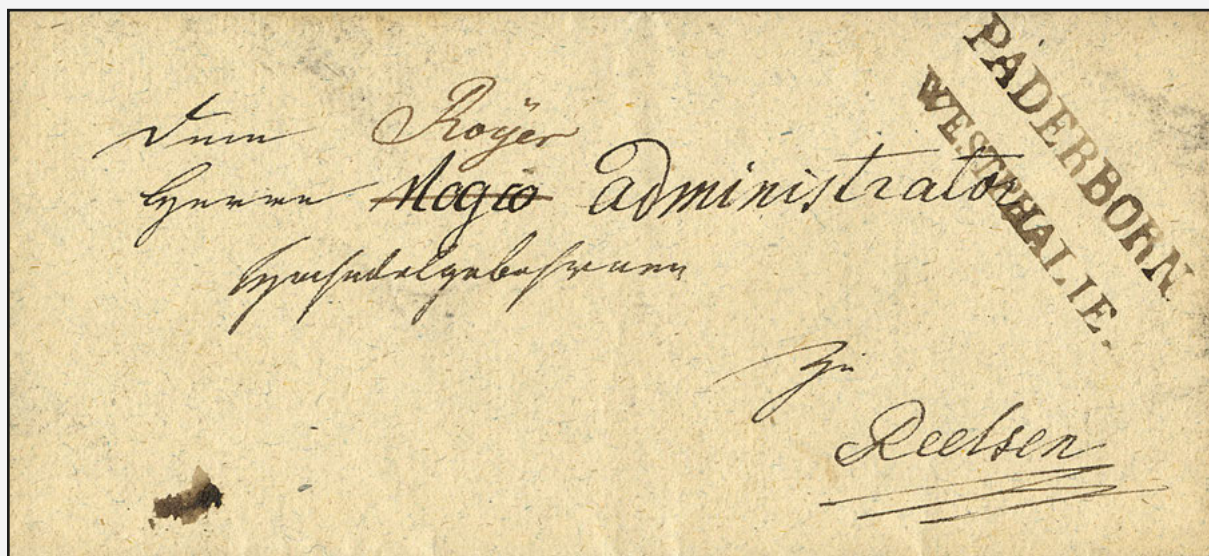 PADERBORN
WESTPHALIE.
Dem Royer
Herrn Administrator
Hochedelgebohrnen
Zu
Reelsen